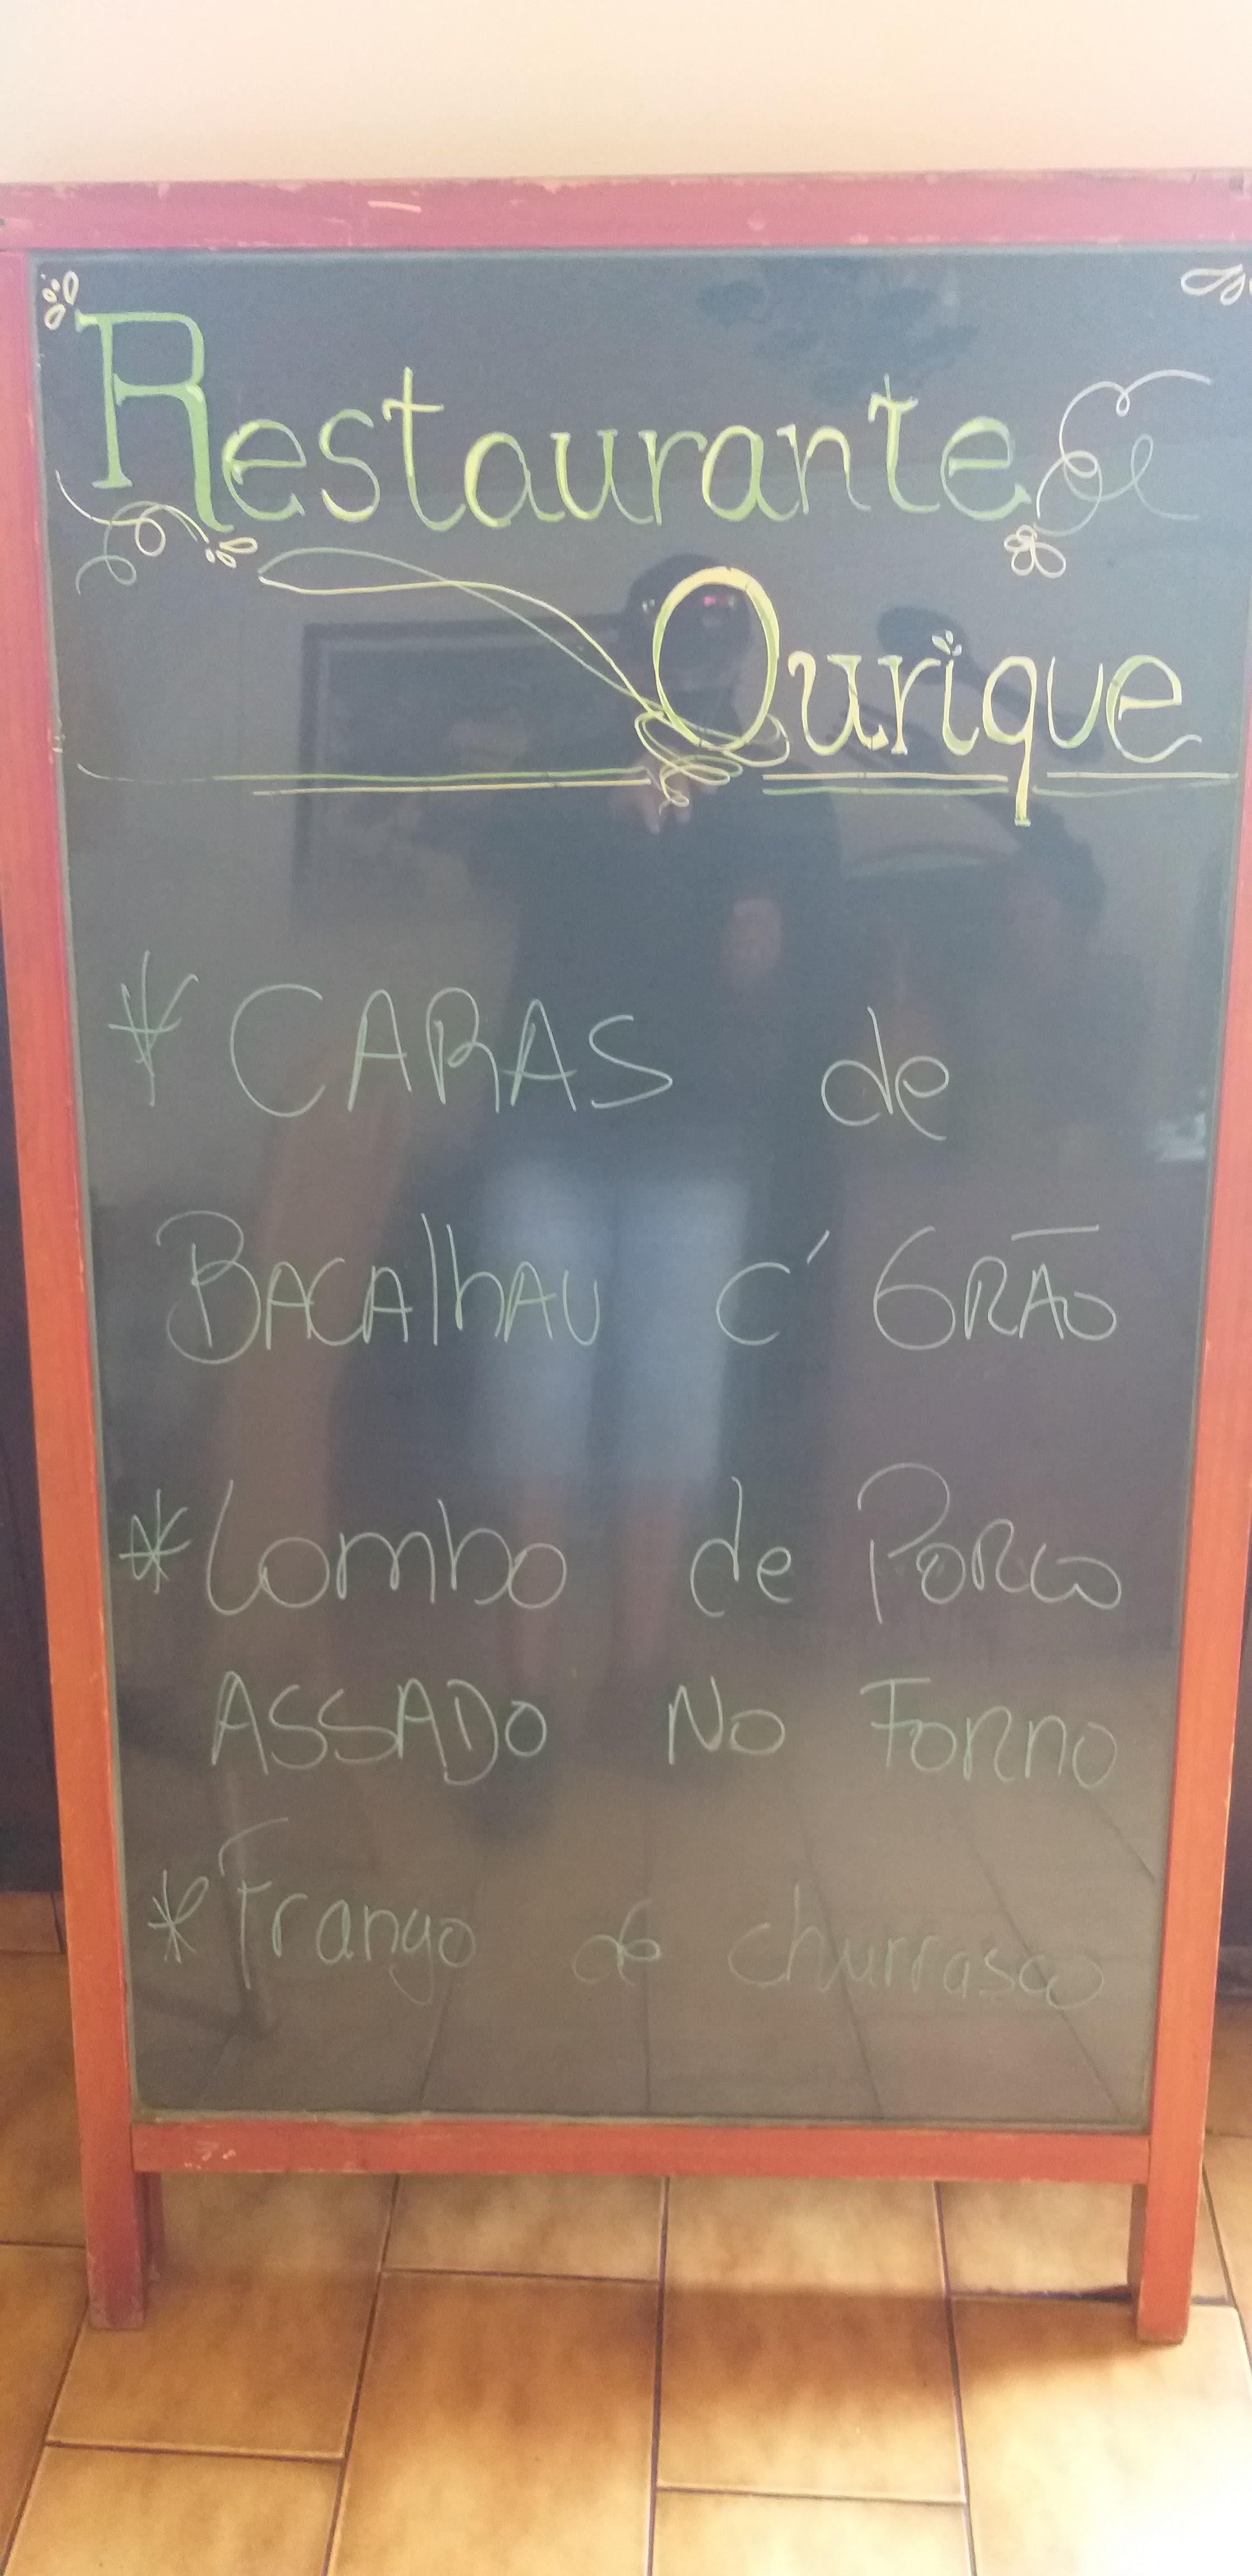 Restaurante
Ourique
* CARAS de
BACAlhAU c' GRÃO
* Lombo de PORCO
ASSADO NO FORNO
* Frango de churrasco